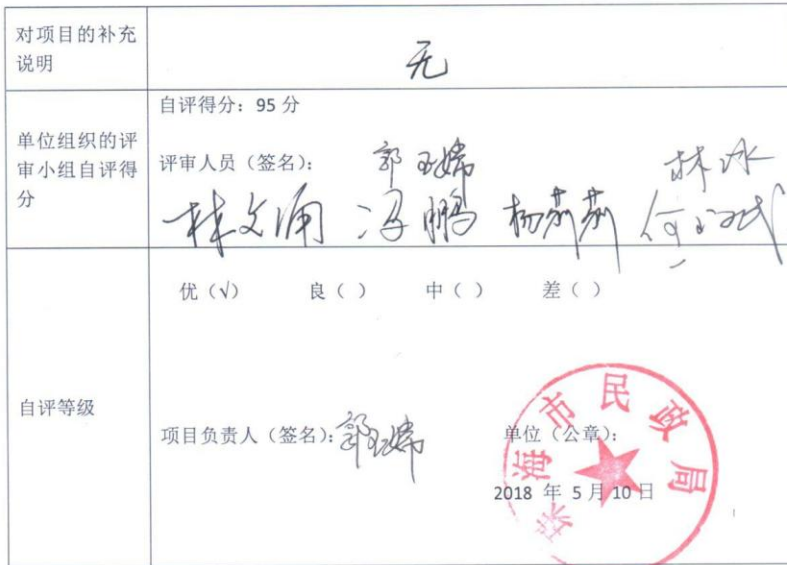 对项目的补充
说明
无
单位组织的评
审小组自评得
分
自评得分：95 分
评审人员（签名）：
郭 林冰
林文 冯鹏 杨莉莉 何
自评等级
优（√） 良（ ） 中（ ） 差（ ）
项目负责人（签名）：郭
单位（公章）：
2018 年 5 月 10 日
珠海市民政局